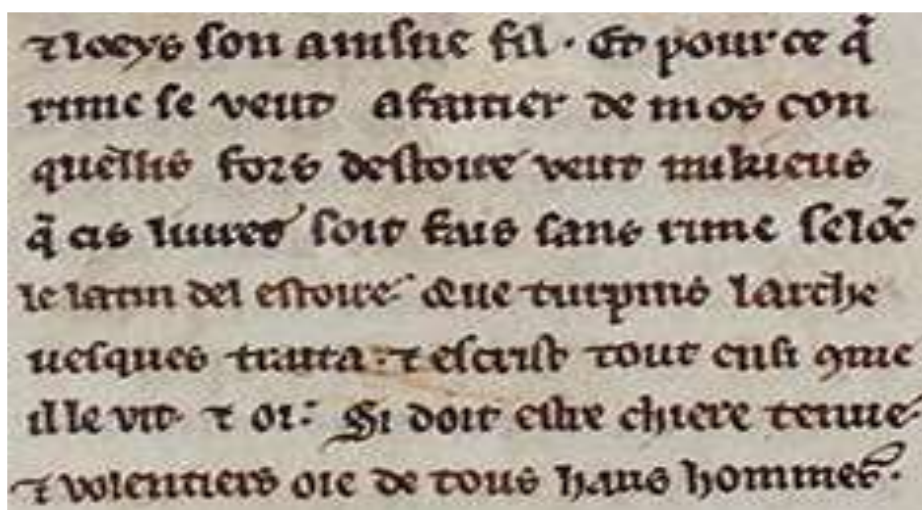 ⁊ loeys son ainsne fil · Et pour ce q̃
rime se veut afaitier de mos con
quellis fors destoire veut mikieus
q̃ cis liures soit fais sans rime selōc
le latin del estoire · Que turpins larche
uesques traita · ⁊ escrist tout ensi ꝯme
il le vit · ⁊ oi · Si doit estre chiere tenue
⁊ volentiers oie de tous haus hommes ·